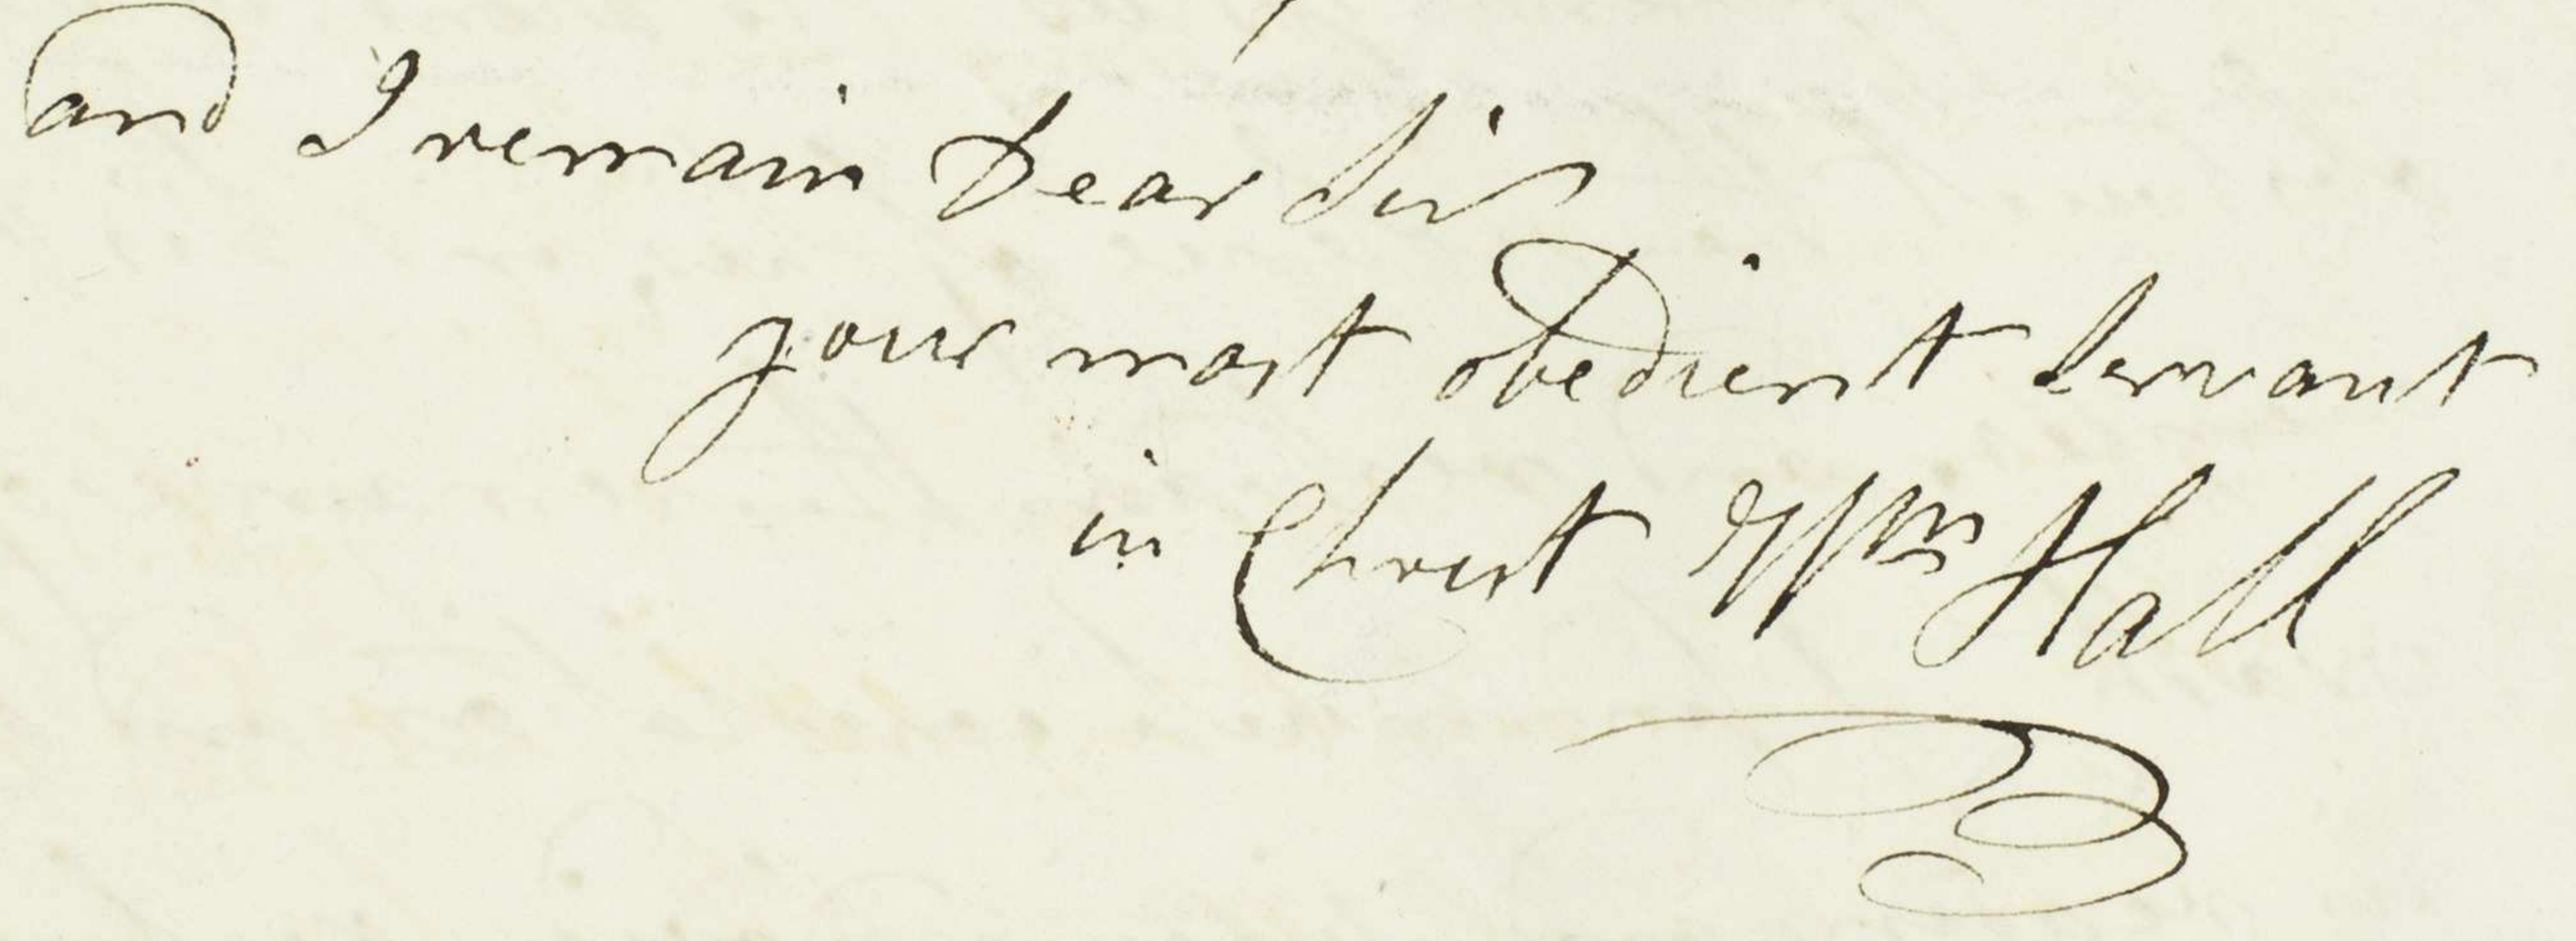 and I remain Dear Sir
your most obedient Servant
in Christ Wm Hall